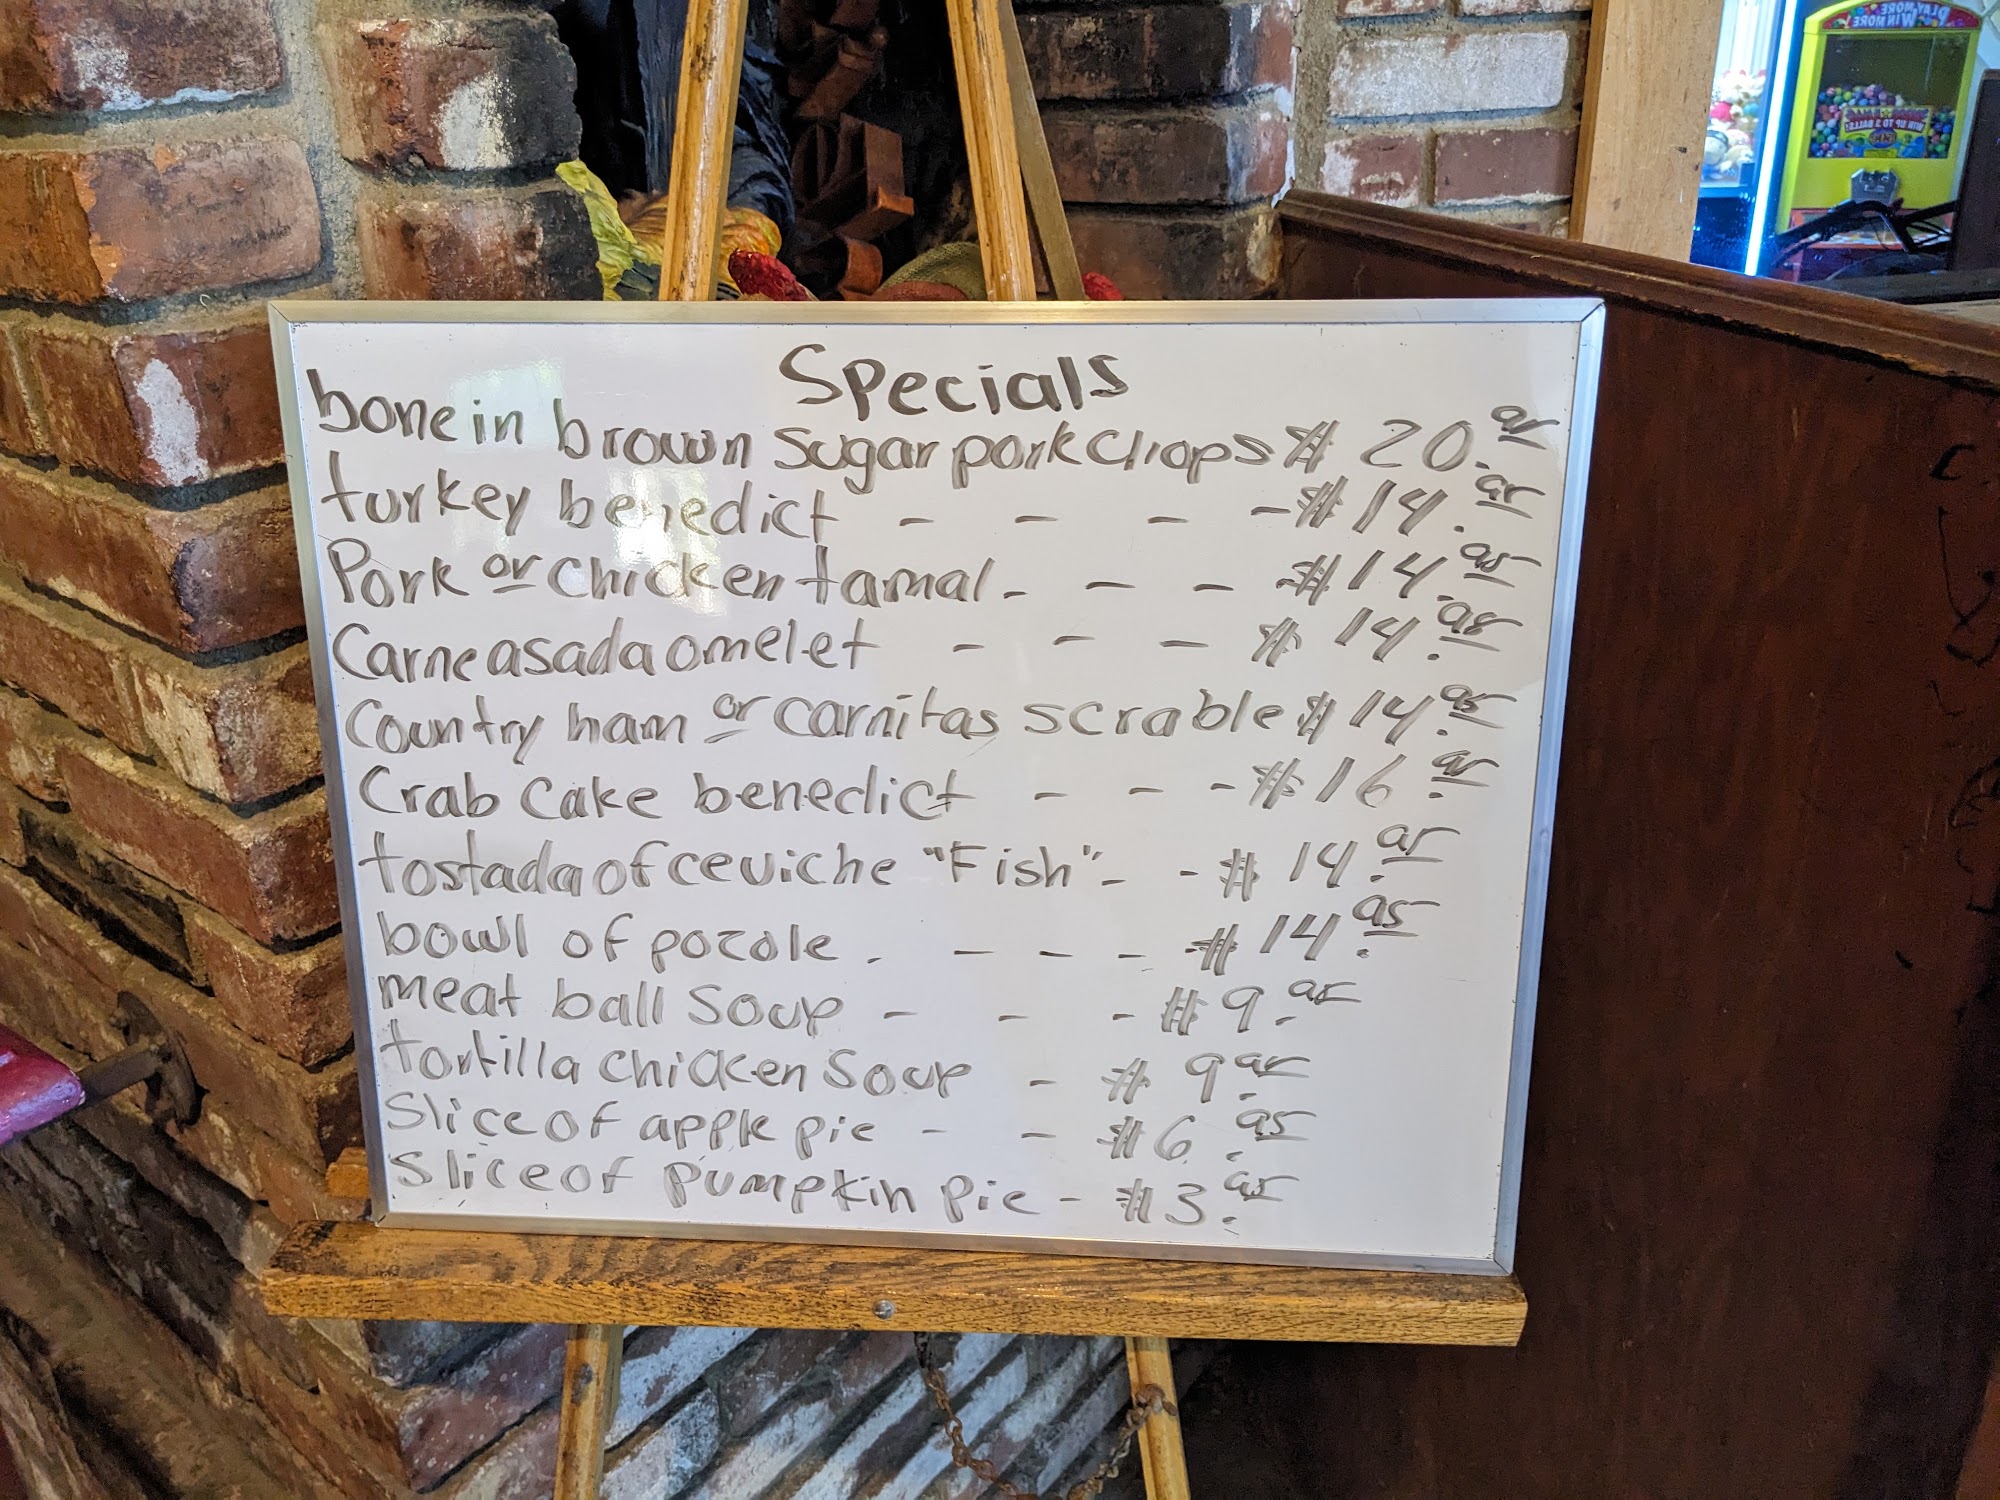 Specials
bone in brown sugar pork chops $ 20.95
turkey benedict - - - - $14.95
Pork or chicken tamal - - - $14.95
Carne asada omelet - - - $ 14.98
Country ham or carnitas scrable $14.95
Crab Cake benedict - - - $16.95
tostada of ceviche "Fish" - - $ 14.95
bowl of pozole . - - - $ 14.95
meat ball Soup - - - $9.95
tortilla chicken Soup - $ 9.95
Slice of apple pie - - $6.95
Slice of pumpkin pie - $3.95
PLAY MORE
WIN MORE
WIN UP TO 3 BALLS!